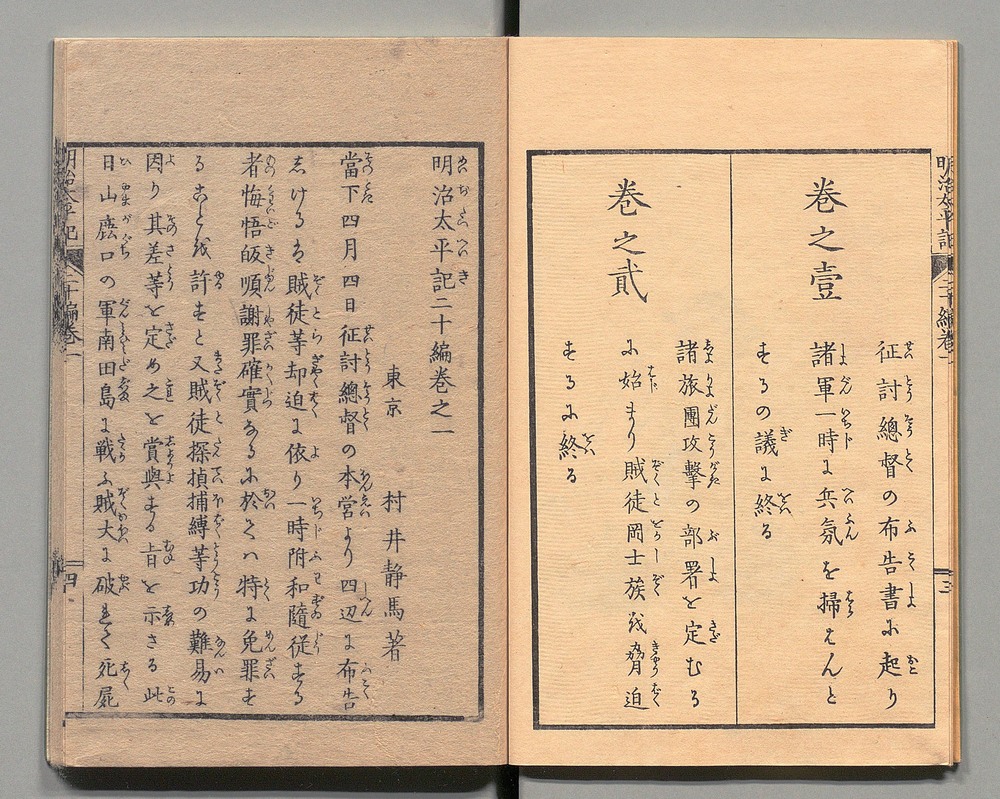 明治太平記 二十編卷一
三
卷之壹
征討總督の布告書に起り
諸軍一時に兵氛を掃はんと
するの議に終る
卷之貳
諸旅團攻擊の部署を定むる
に始まり賊徒岡士族を脅迫
するに終る
明治太平記二十編卷之一
東京 村井静馬著
當下四月四日征討總督の本営より四辺に布告
しけるハ賊徒等却迫に依り一時附和隨従する
者悔悟皈順謝罪確實なるに於てハ特に免罪す
ることを許すと又賊徒探偵捕縛等功の難易に
因り其差等を定め之を賞與する旨を示さる此
日山鹿口の軍南田島に戦ふ賊大に破れて死屍
明治太平記 二十編卷一
四